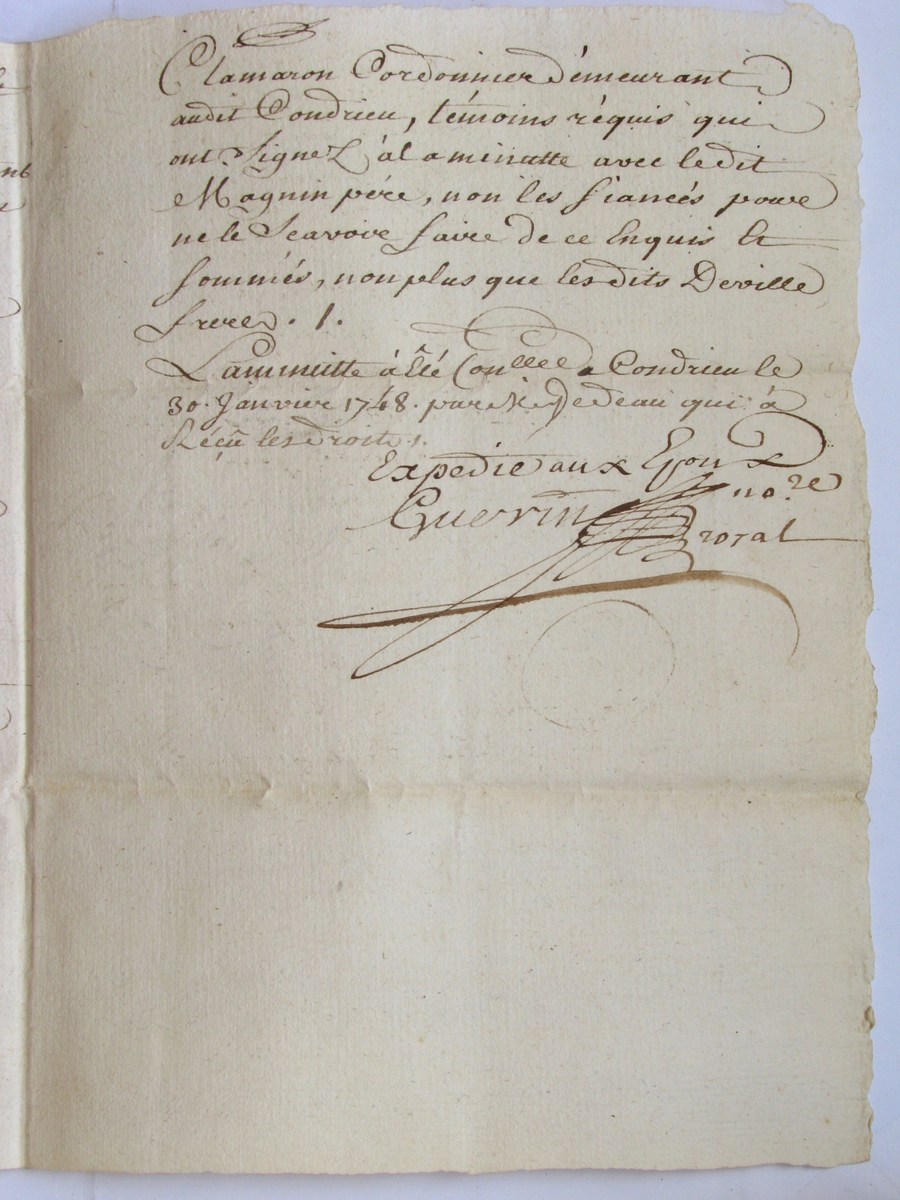 Clamaron Cordonnier démeurant
audit Condrieu, témoins réquis qui
ont Signez á la minutte avec ledit
Magnin pére, non les fiancés pour
ne le Scavoir faire de ce Enquis Et
sommés, non plus que lesdits Deville
freres. /.
La minutte á Eté Conllee a Condrieu le
30. Janvier 1748. par Mr Dedeau qui á
Réçû les Droits.
Expedié aux Epoux
Guerin no.re
roral